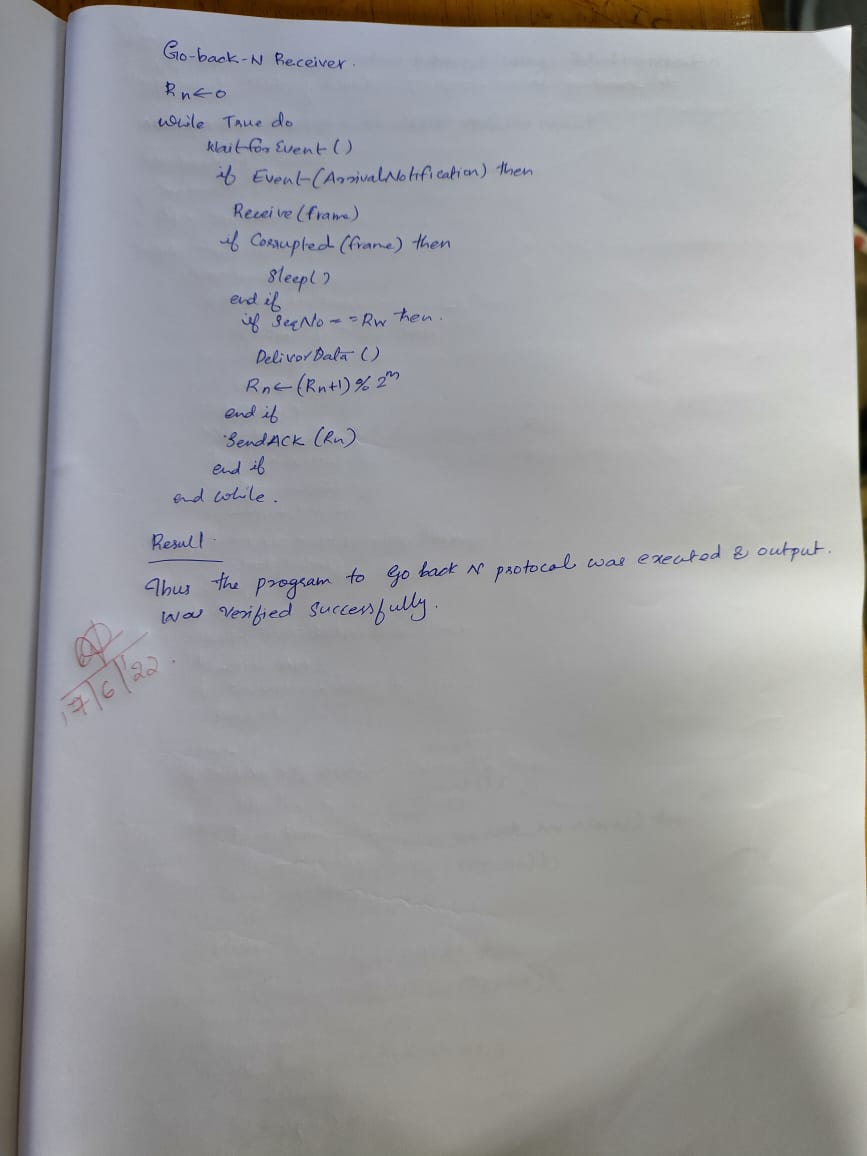 Go-back-N Receiver.
Rn←0
while True do
Wait for Event ()
if Event (ArrivalNotification) then
Receive (frame)
if Corrupted (frame) then
Sleep()
end if
if SeqNo = = Rn then.
DeliverData ()
Rn← (Rn+1) % 2^m
end if
SendACK (Rn)
end if
end while.
Result
Thus the program to Go back N protocal was executed & output.
was verified successfully.
17/6/22.